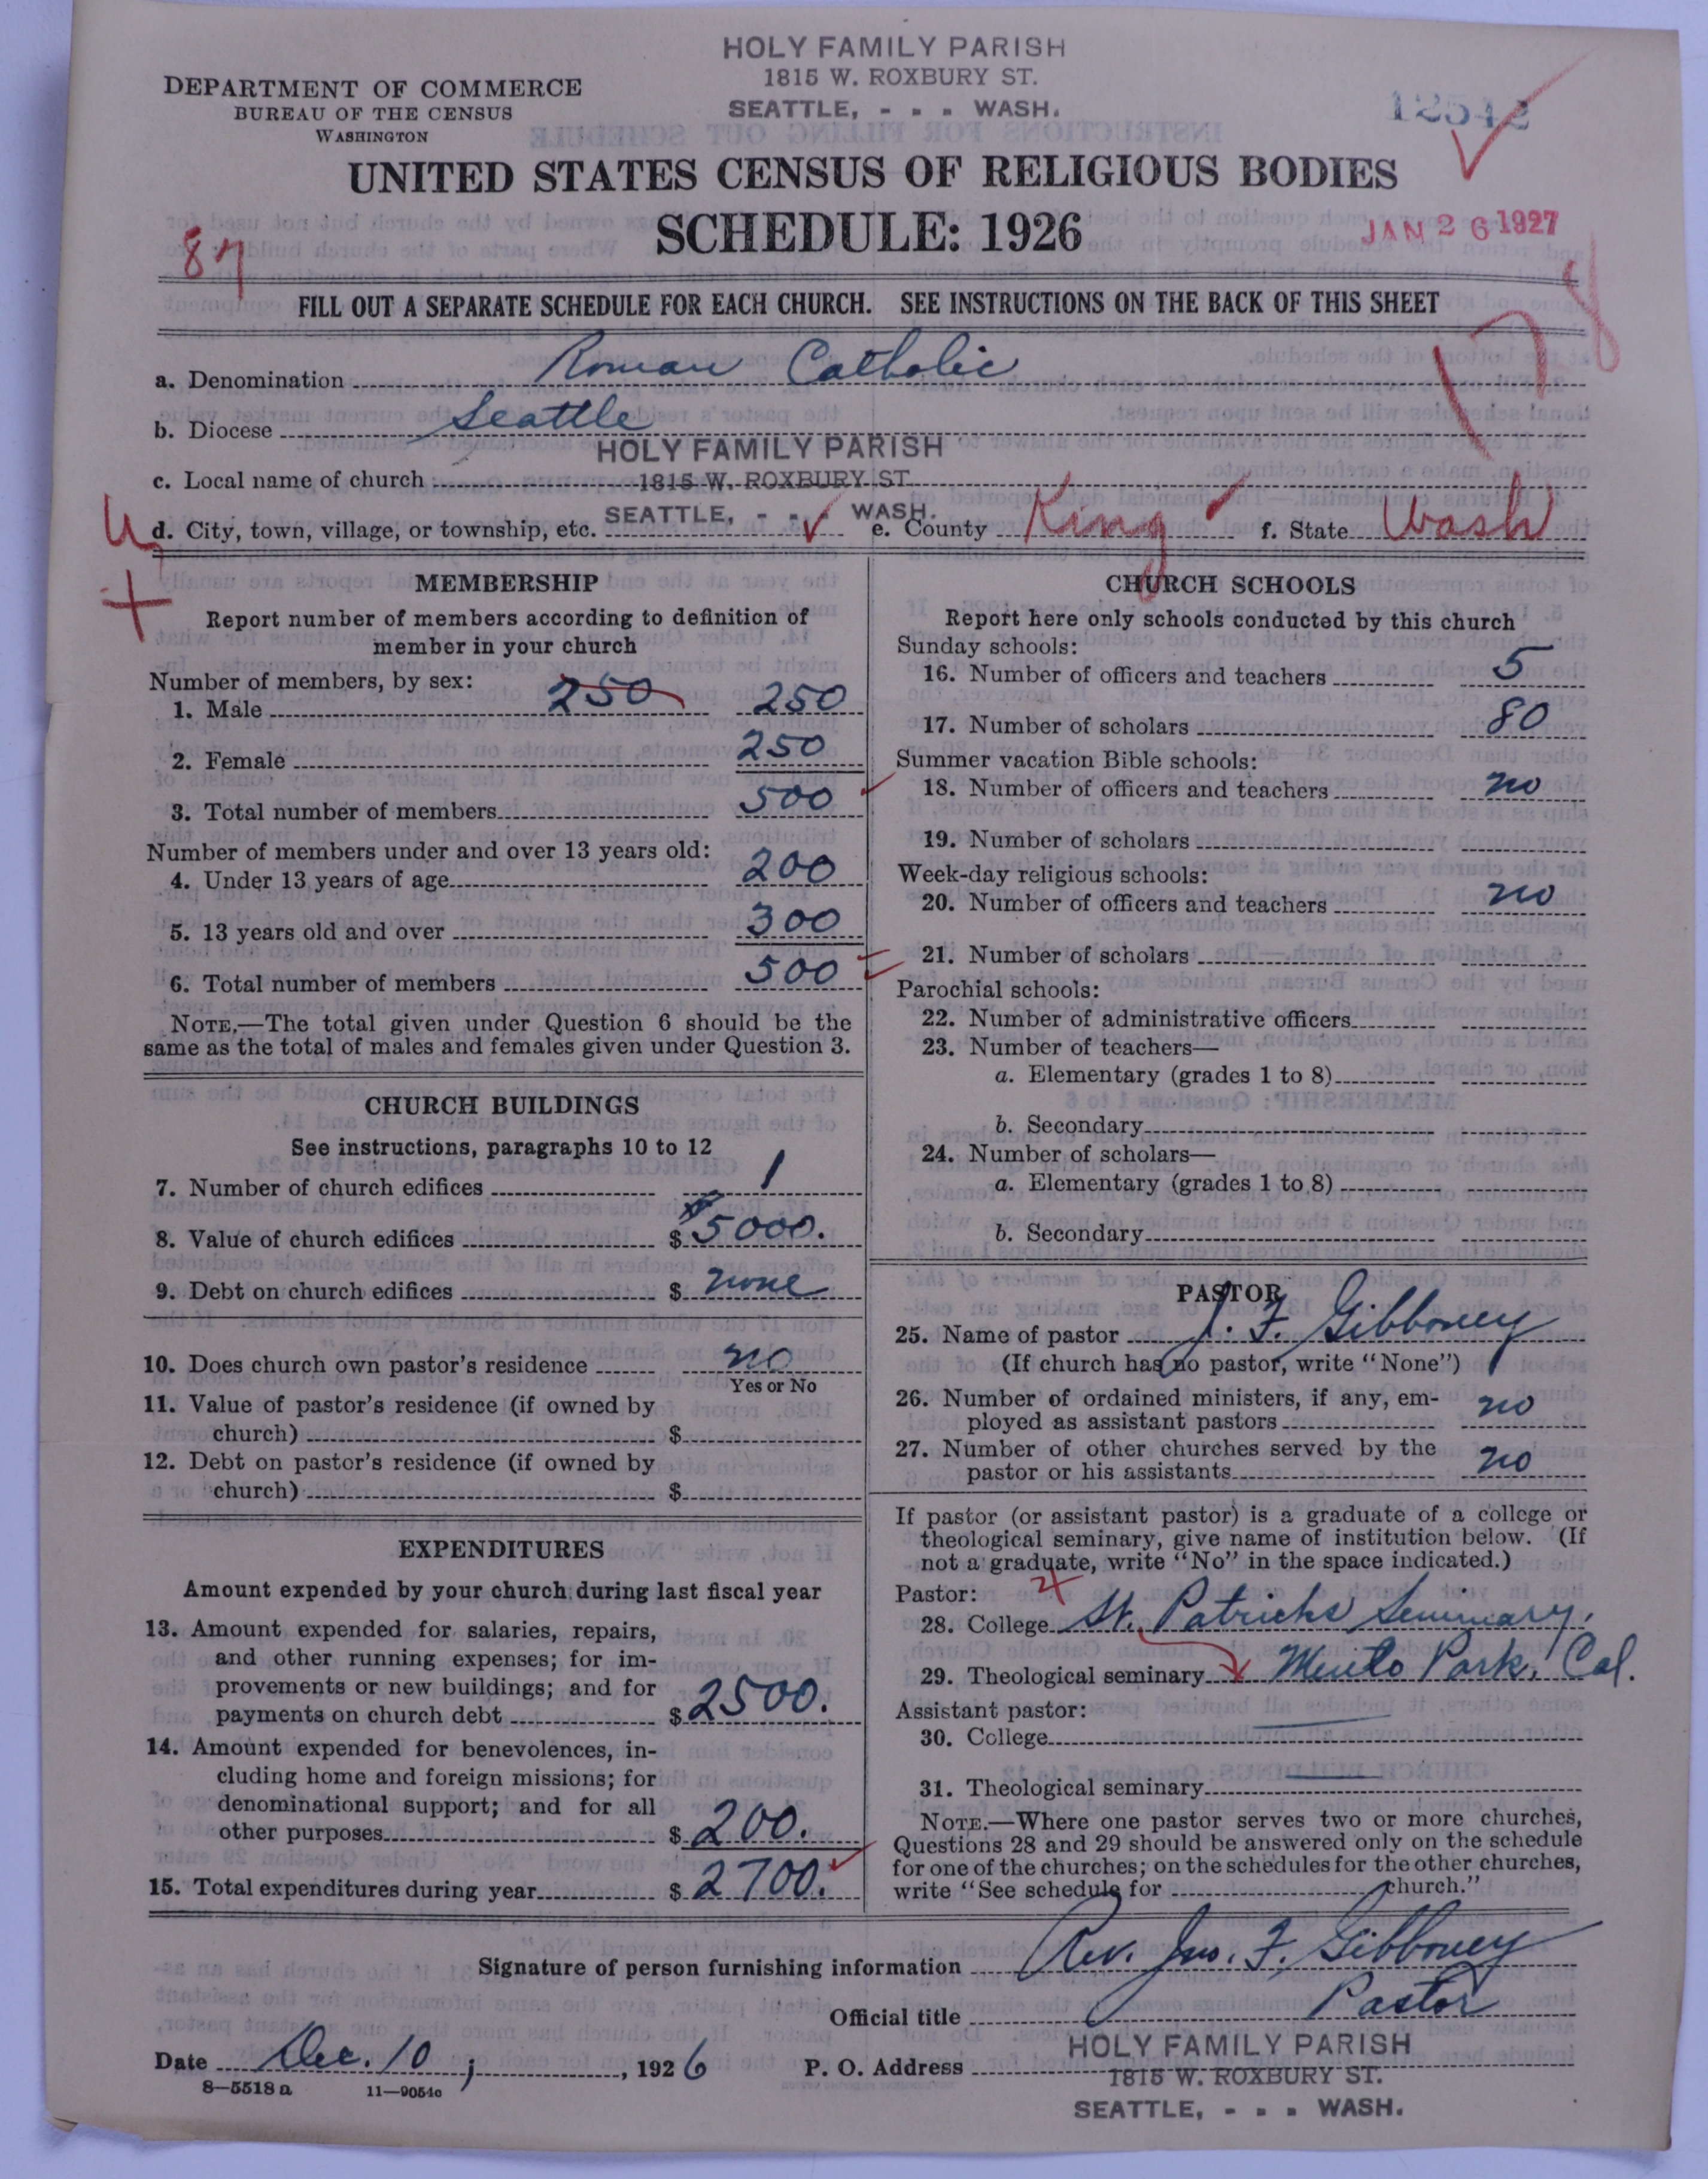 HOLY FAMILY PARISH
1815 W. ROXBURY ST.
SEATTLE, - - - WASH.
DEPARTMENT OF COMMERCE
BUREAU OF THE CENSUS
WASHINGTON
12542
UNITED STATES CENSUS OF RELIGIOUS BODIES
SCHEDULE: 1926
JAN 26 1927
87
FILL OUT A SEPARATE SCHEDULE FOR EACH CHURCH. SEE INSTRUCTIONS ON THE BACK OF THIS SHEET
a. Denomination Roman Catholic
b. Diocese Seattle
HOLY FAMILY PARISH
c. Local name of church 1815 W. ROXBURY ST.
SEATTLE, - - - WASH.
d. City, town, village, or township, etc. e. County King f. State Wash
MEMBERSHIP
Report number of members according to definition of
member in your church
Number of members, by sex:
1. Male 250 250
2. Female 250
3. Total number of members 500
Number of members under and over 13 years old:
4. Under 13 years of age 200
5. 13 years old and over 300
6. Total number of members 500
NOTE.—The total given under Question 6 should be the
same as the total of males and females given under Question 3.
CHURCH BUILDINGS
See instructions, paragraphs 10 to 12
7. Number of church edifices 1
8. Value of church edifices $ 5000.
9. Debt on church edifices $ none
10. Does church own pastor's residence no
Yes or No
11. Value of pastor's residence (if owned by
church) $
12. Debt on pastor's residence (if owned by
church) $
EXPENDITURES
Amount expended by your church during last fiscal year
13. Amount expended for salaries, repairs,
and other running expenses; for im-
provements or new buildings; and for
payments on church debt $ 2500.
14. Amount expended for benevolences, in-
cluding home and foreign missions; for
denominational support; and for all
other purposes $ 200.
15. Total expenditures during year $ 2700.
CHURCH SCHOOLS
Report here only schools conducted by this church
Sunday schools:
16. Number of officers and teachers 5
17. Number of scholars 80
Summer vacation Bible schools:
18. Number of officers and teachers no
19. Number of scholars
Week-day religious schools:
20. Number of officers and teachers no
21. Number of scholars
Parochial schools:
22. Number of administrative officers
23. Number of teachers—
a. Elementary (grades 1 to 8)
b. Secondary
24. Number of scholars—
a. Elementary (grades 1 to 8)
b. Secondary
PASTOR
25. Name of pastor J. F. Gibboney
(If church has no pastor, write "None")
26. Number of ordained ministers, if any, em-
ployed as assistant pastors no
27. Number of other churches served by the
pastor or his assistants no
If pastor (or assistant pastor) is a graduate of a college or
theological seminary, give name of institution below. (If
not a graduate, write "No" in the space indicated.)
Pastor:
28. College St. Patricks Seminary,
29. Theological seminary Menlo Park, Cal.
Assistant pastor:
30. College
31. Theological seminary
NOTE.—Where one pastor serves two or more churches,
Questions 28 and 29 should be answered only on the schedule
for one of the churches; on the schedules for the other churches,
write "See schedule for church."
Signature of person furnishing information Rev. Jno. F. Gibboney
Official title Pastor
Date Dec. 10, 1926 P. O. Address HOLY FAMILY PARISH
1815 W. ROXBURY ST.
SEATTLE, - - - WASH.
8—5518 a 11—9054c